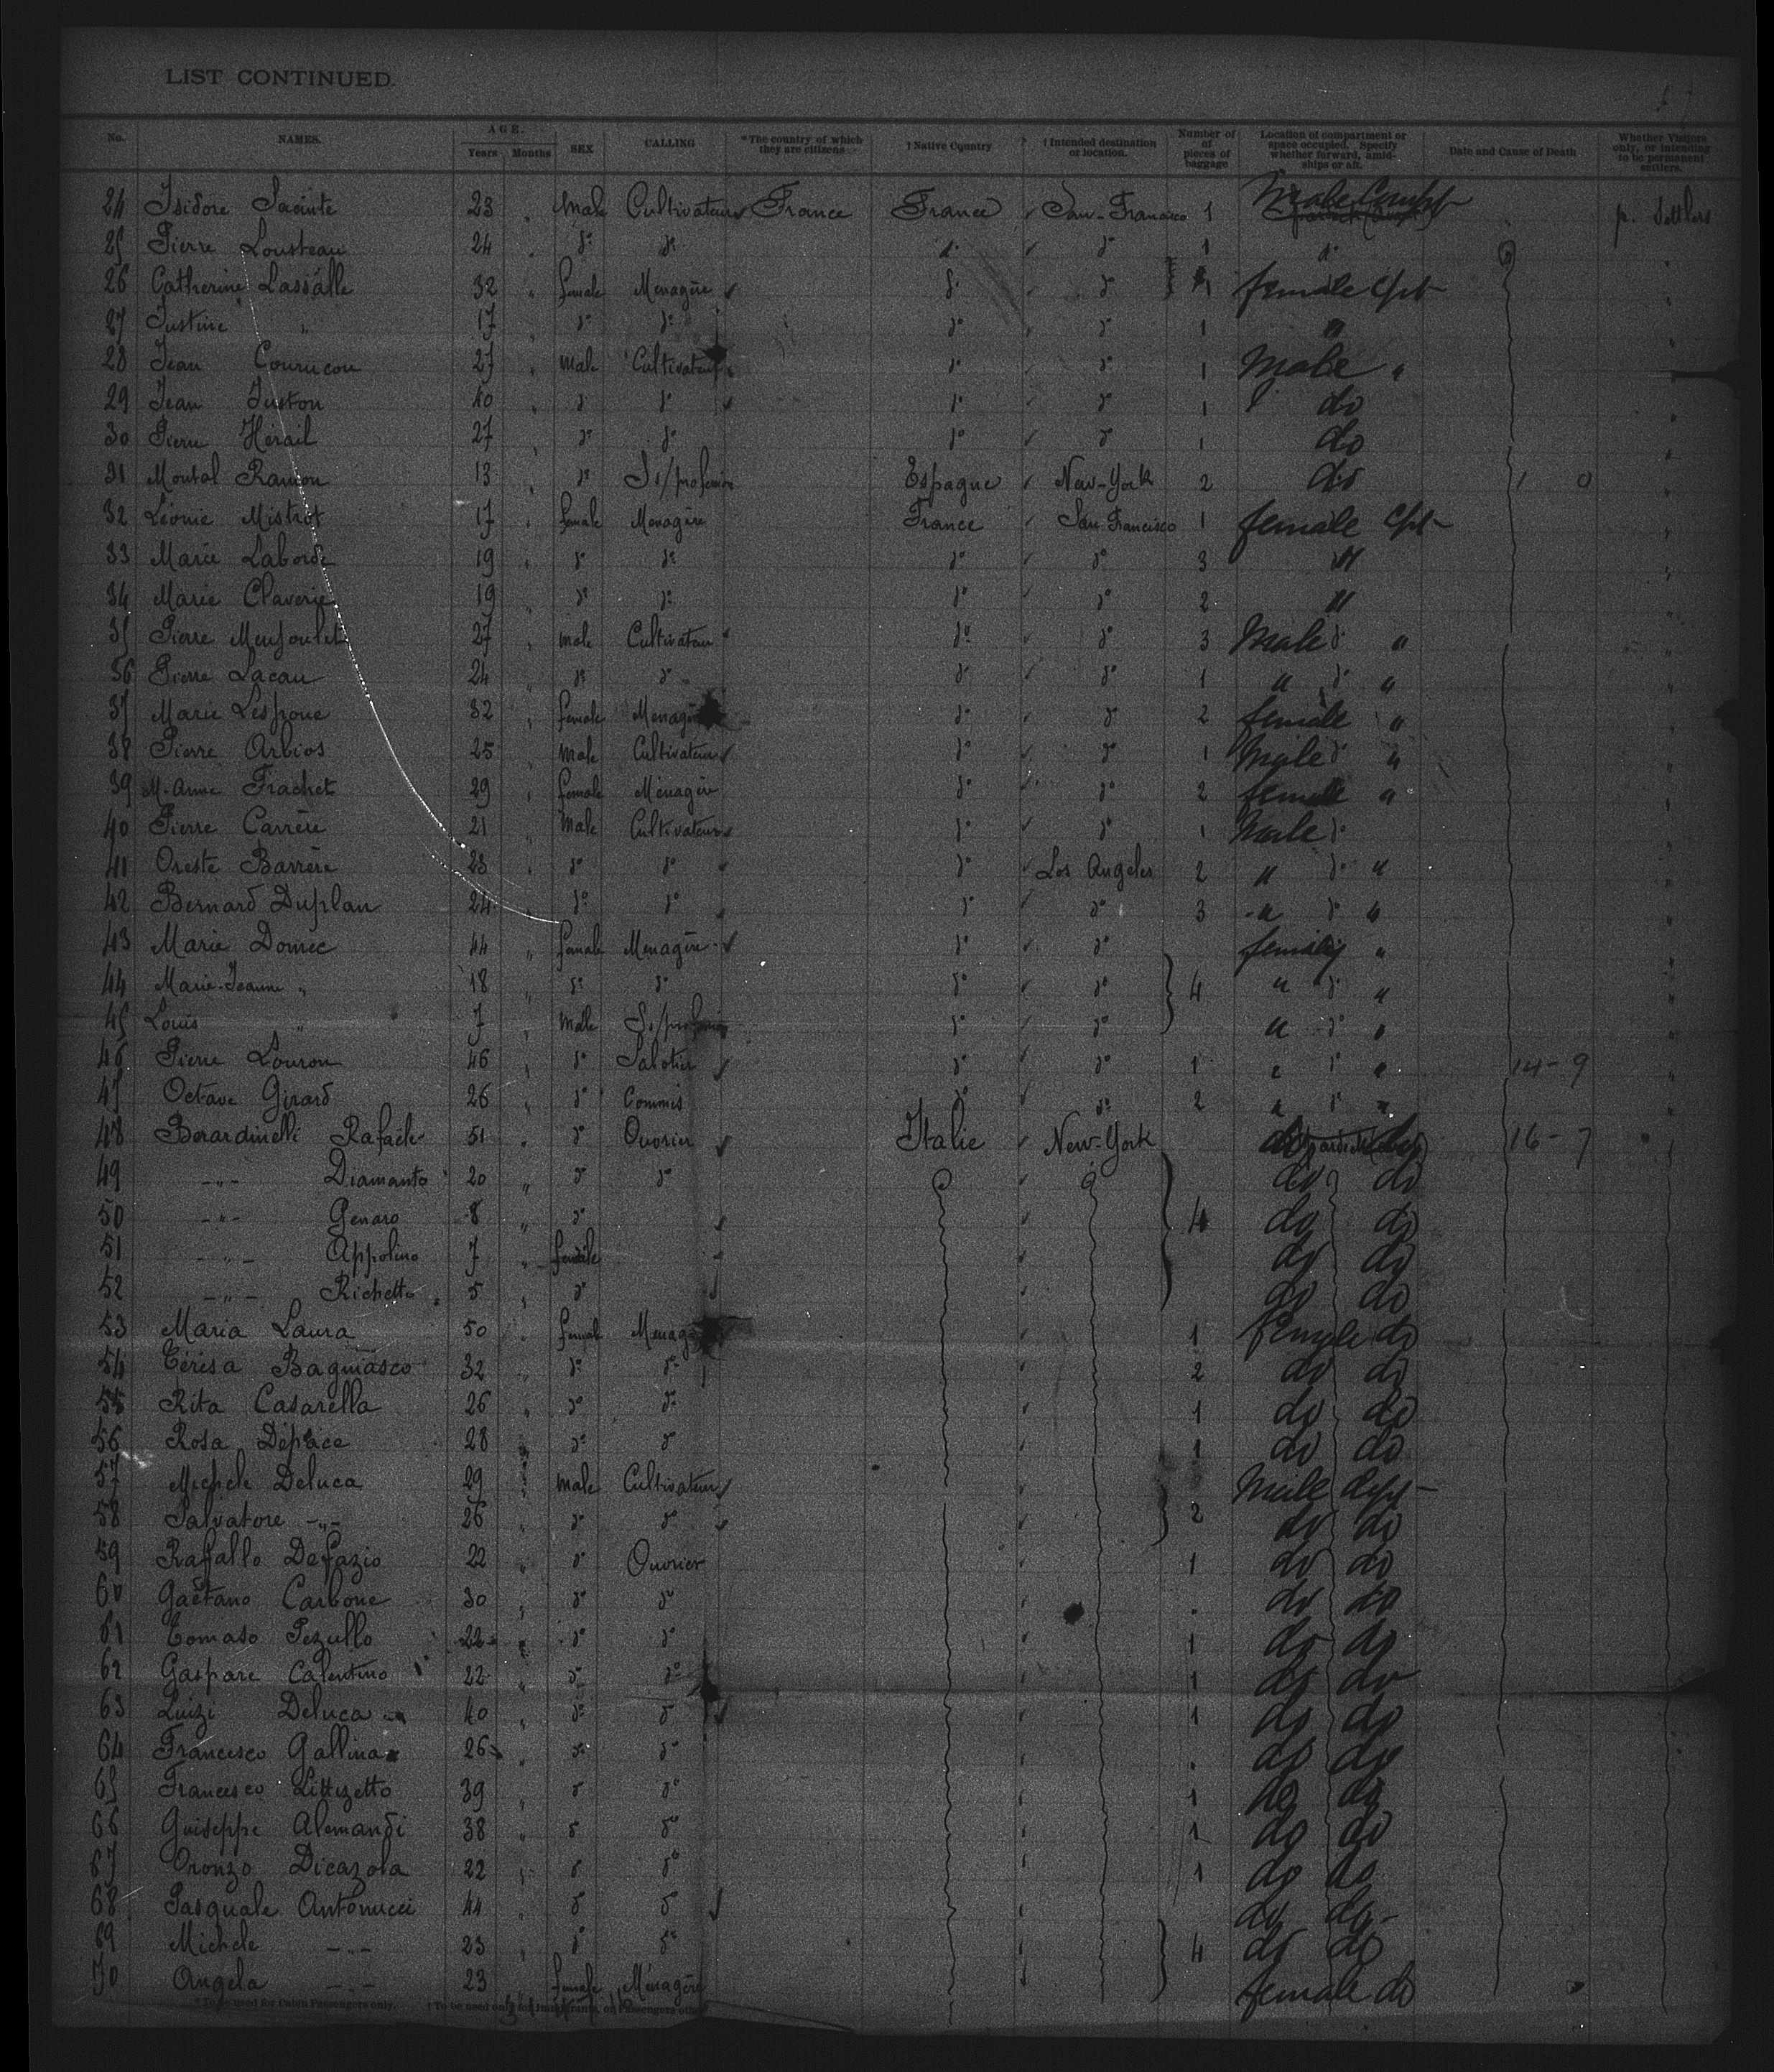 LIST CONTINUED.
No. NAMES. AGE. Years Months SEX CALLING *The country of which they are citizens †Native Country †Intended destination or location. Number of pieces of baggage Location of compartment or space occupied. Specify whether forward, amidships or aft. Date and Cause of Death Whether Visitors only, or intending to be permanent settlers.
24 Isidore Jacinte 23 " Male Cultivateur France France San-Francisco 1 Male Compt p. Settlers
25 Pierre Lousteau 24 " do do do do 1 do "
26 Catherine Lassalle 32 " female Menagère do do 1 female Cpt "
27 Justine " 17 " do do do do 1 " "
28 Jean 27 " Male Cultivateur do do 1 Male " "
29 Jean Juston 40 " do do do do 1 do "
30 Pierre Hérail 27 " do do do do 1 do "
31 Montal Ramon 13 " do Ss/profession Espagne New-York 2 do 1 0 "
32 Léonie Mistrot 17 " female Menagère France San Francisco 1 female Cpt "
33 Marie Laborde 19 " do do do do 3 " "
34 Marie Claverie 19 " do do do do 2 " "
35 Pierre 27 " male Cultivateur do do 3 Male do " "
36 Pierre Lacau 24 " do do do do 1 " do " "
37 Marie Lespoue 32 " female Menagère do do 2 female " "
38 Pierre Arbios 25 " Male Cultivateur do do 1 Male do " "
39 M-Anne Frachet 29 " female Ménagère do do 2 female " "
40 Pierre Carrère 21 " Male Cultivateur do do 1 Male do "
41 Oreste Barrère 23 " do do do Los Angeles 2 " do " "
42 Bernard Duplan 24 " do do do do 3 " do " "
43 Marie Domec 44 " female Menagère do do "
44 Marie-Jeanne " 18 " do do do do 4 " do " "
45 Louis " 7 " Male Ss/profession do do " do " "
46 Pierre Louron 46 " do Sabotier do do 1 " do " 14-9 "
47 Octave Girard 26 " do Commis do do 2 " do " "
48 Berardinelli Rafaële 51 " do Ouvrier Italie New-York do 16-7
49 -"- Diamanto 20 " do do do do
50 -"- Genaro 8 " do 4 do do
51 -"- Appolino 7 " female do do
52 -"- Richetta 5 " do do do
53 Maria Laura 50 " female Menagère 1 female do
54 Térésa Bagnasco 32 " do do 2 do do
55 Rita Casarella 26 " do do 1 do do
56 Rosa Depace 28 " do do 1 do do
57 Michele Deluca 29 " male Cultivateur Male dept
58 Salvatore -"- 26 " do do 2 do do
59 Rafallo Defazio 22 " do Ouvrier 1 do do
60 Gaëtano Carbone 30 " do do do do
61 Tomaso Pezullo 22 " do do 1 do do
62 Gaspare Calentino 22 " do do 1 do do
63 Luizi Deluca 40 " do do 1 do do
64 Francesco Gallina 26 " do do do do
65 Francesco Littizetto 39 " do do 1 do do
66 Guiseppe Alemandi 38 " do do 1 do do
67 Oronzo Dicazola 22 " do do 1 do do
68 Pasquale Antonucci 44 " do do do do
69 Michele -"- 23 " do do 4 do do
70 Angela -"- 23 female Ménagère female do